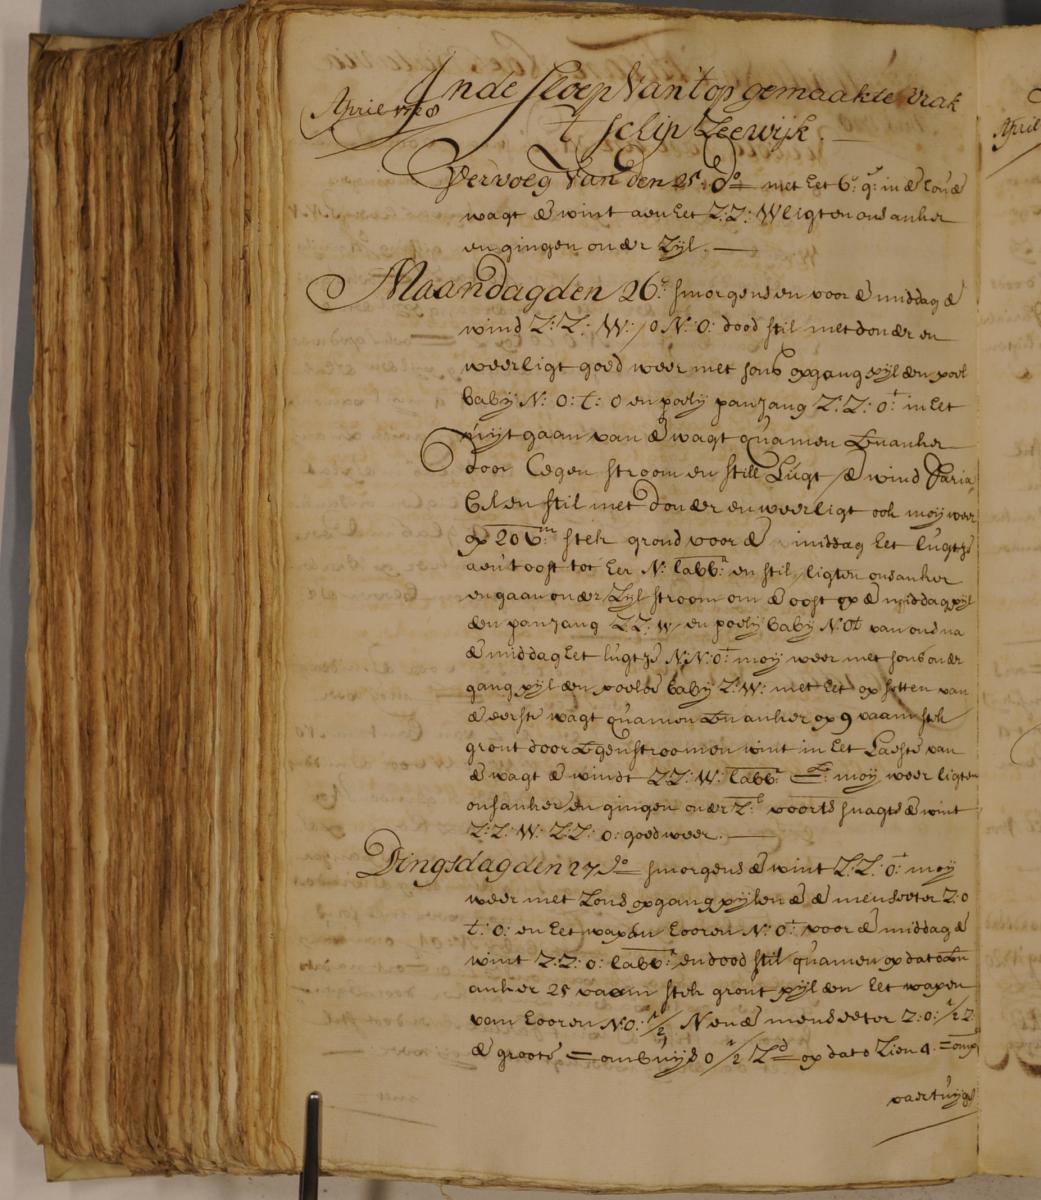 April 1728
In de Sloep Van 't op gemaakte vrak
't schip Zeewijk.
Vervolg van den 25: do met het 6: g: in de honde
wagt de wint aen het Z:Z: W ligten ons anker
en gingen onder Zyl.
Maandag den 26: smorgens en voor de middag de
wind Z:Z: W: / o N: O: dood stil met donder en
weerligt goed weer met sons opgang pyl den poel
baby N: O: t: O en poely panjang Z:Z: O: in het
uijtgaan van de wagt quamen ten anker
door tegen stroom en still lugt / de wind varia
bel en stil met donder en weerligt ook moy weer
op 20 vm stek grond voor de middag het lugtje
aen 't oost tot her N: labb: en stil ligten ons anker
en gaan onder Zyl stroom om de oost op de middag pyl
den panjang ZZ: W en poely baby N:Ot van ons na
de middag het lugtje N:N:O: moy weer met sons onder
gang pyl den poelo baby Z:W: met het op setten van
de eerste wagt quamen ten anker op 9 vaam stek
gront door tegenstroom en wint in het Laeste van
de wagt de windt ZZ: W: labb: moy weer ligten
ons anker en gingen onder Z: voorts snagts de wint
Z:Z: W: Z:Z: O: goed weer.
Dingsdag den 27 do smorgens de wint Z:Z: O: moy
weer met Zons opgang pylen de menseeter Z:O
t: O: en het wapen hooren N: O: voor de middag de
wint Z:Z: O: labb: en dood stil quamen op dato ten
anker 25 vaam stek gront pyl den het wapen
van hooren NO: 1/2 N en de menseeter Z:O: 1/2 Z
de groote combuijs O 1/2 Zd op dato Zien 4
vaertuyge
April